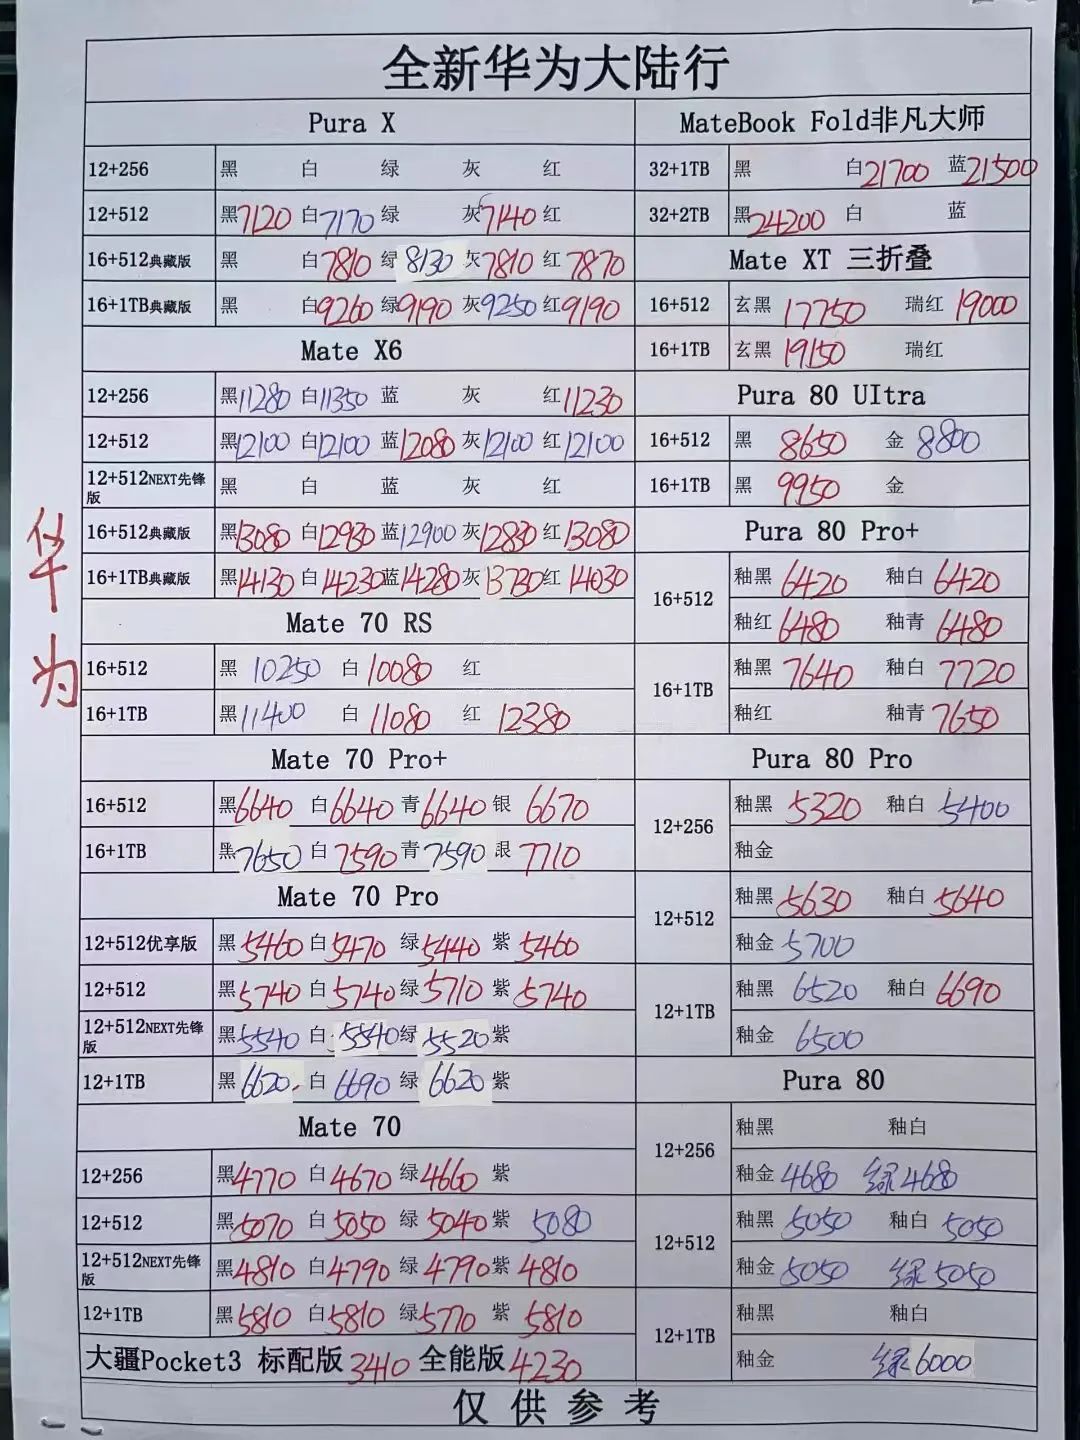 全新华为大陆行
华为
Pura X
12+256 黑 白 绿 灰 红
12+512 黑7120 白7170 绿 灰7140 红
16+512典藏版 黑 白7810 绿8130 灰7810 红7870
16+1TB典藏版 黑 白9260 绿9190 灰9250 红9190
Mate X6
12+256 黑11280 白11350 蓝 灰 红11230
12+512 黑12100 白12100 蓝12080 灰12100 红12100
12+512NEXT先锋版 黑 白 蓝 灰 红
16+512典藏版 黑13080 白12930 蓝12900 灰12830 红13080
16+1TB典藏版 黑14130 白14230 蓝14280 灰13730 红14030
Mate 70 RS
16+512 黑 10250 白10080 红
16+1TB 黑11400 白 11080 红 12380
Mate 70 Pro+
16+512 黑6640 白6640 青6640 银 6670
16+1TB 黑7650 白7590 青7590 银7710
Mate 70 Pro
12+512优享版 黑5460 白5470 绿5440 紫5460
12+512 黑5740 白5740 绿5710 紫5740
12+512NEXT先锋版 黑5540 白5540 绿5520 紫
12+1TB 黑6620 白6690 绿6620 紫
Mate 70
12+256 黑4770 白4670 绿4660 紫
12+512 黑5070 白5050 绿5040 紫 5080
12+512NEXT先锋版 黑4810 白4790 绿4790 紫4810
12+1TB 黑5810 白5810 绿5770 紫 5810
大疆Pocket3 标配版3410 全能版4230
MateBook Fold非凡大师
32+1TB 黑 白21700 蓝21500
32+2TB 黑24200 白 蓝
Mate XT 三折叠
16+512 玄黑 17750 瑞红 19000
16+1TB 玄黑 19150 瑞红
Pura 80 UItra
16+512 黑 8650 金 8800
16+1TB 黑 9950 金
Pura 80 Pro+
16+512 釉黑 6420 釉白 6420
釉红 6480 釉青 6480
16+1TB 釉黑 7640 釉白 7720
釉红 釉青 7650
Pura 80 Pro
12+256 釉黑 5320 釉白 5400
釉金
12+512 釉黑 5630 釉白 5640
釉金 5700
12+1TB 釉黑 6520 釉白 6690
釉金 6500
Pura 80
12+256 釉黑 釉白
釉金 4680 绿4680
12+512 釉黑 5050 釉白 5050
釉金 5050 绿5050
12+1TB 釉黑 釉白
釉金 绿6000
仅供参考